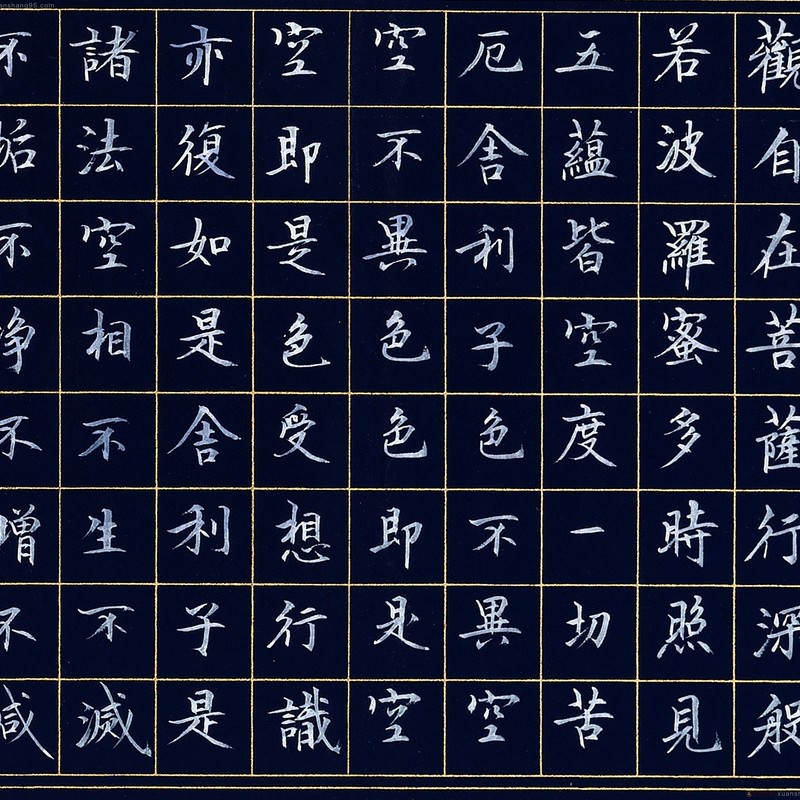 觀自在菩薩行深般
若波羅蜜多時照見
五蘊皆空度一切苦
厄舍利子色不異空
空不異色色即是空
空即是色受想行識
亦復如是舍利子是
諸法空相不生不滅
不垢不淨不增不減
anshang95.com
xuansh